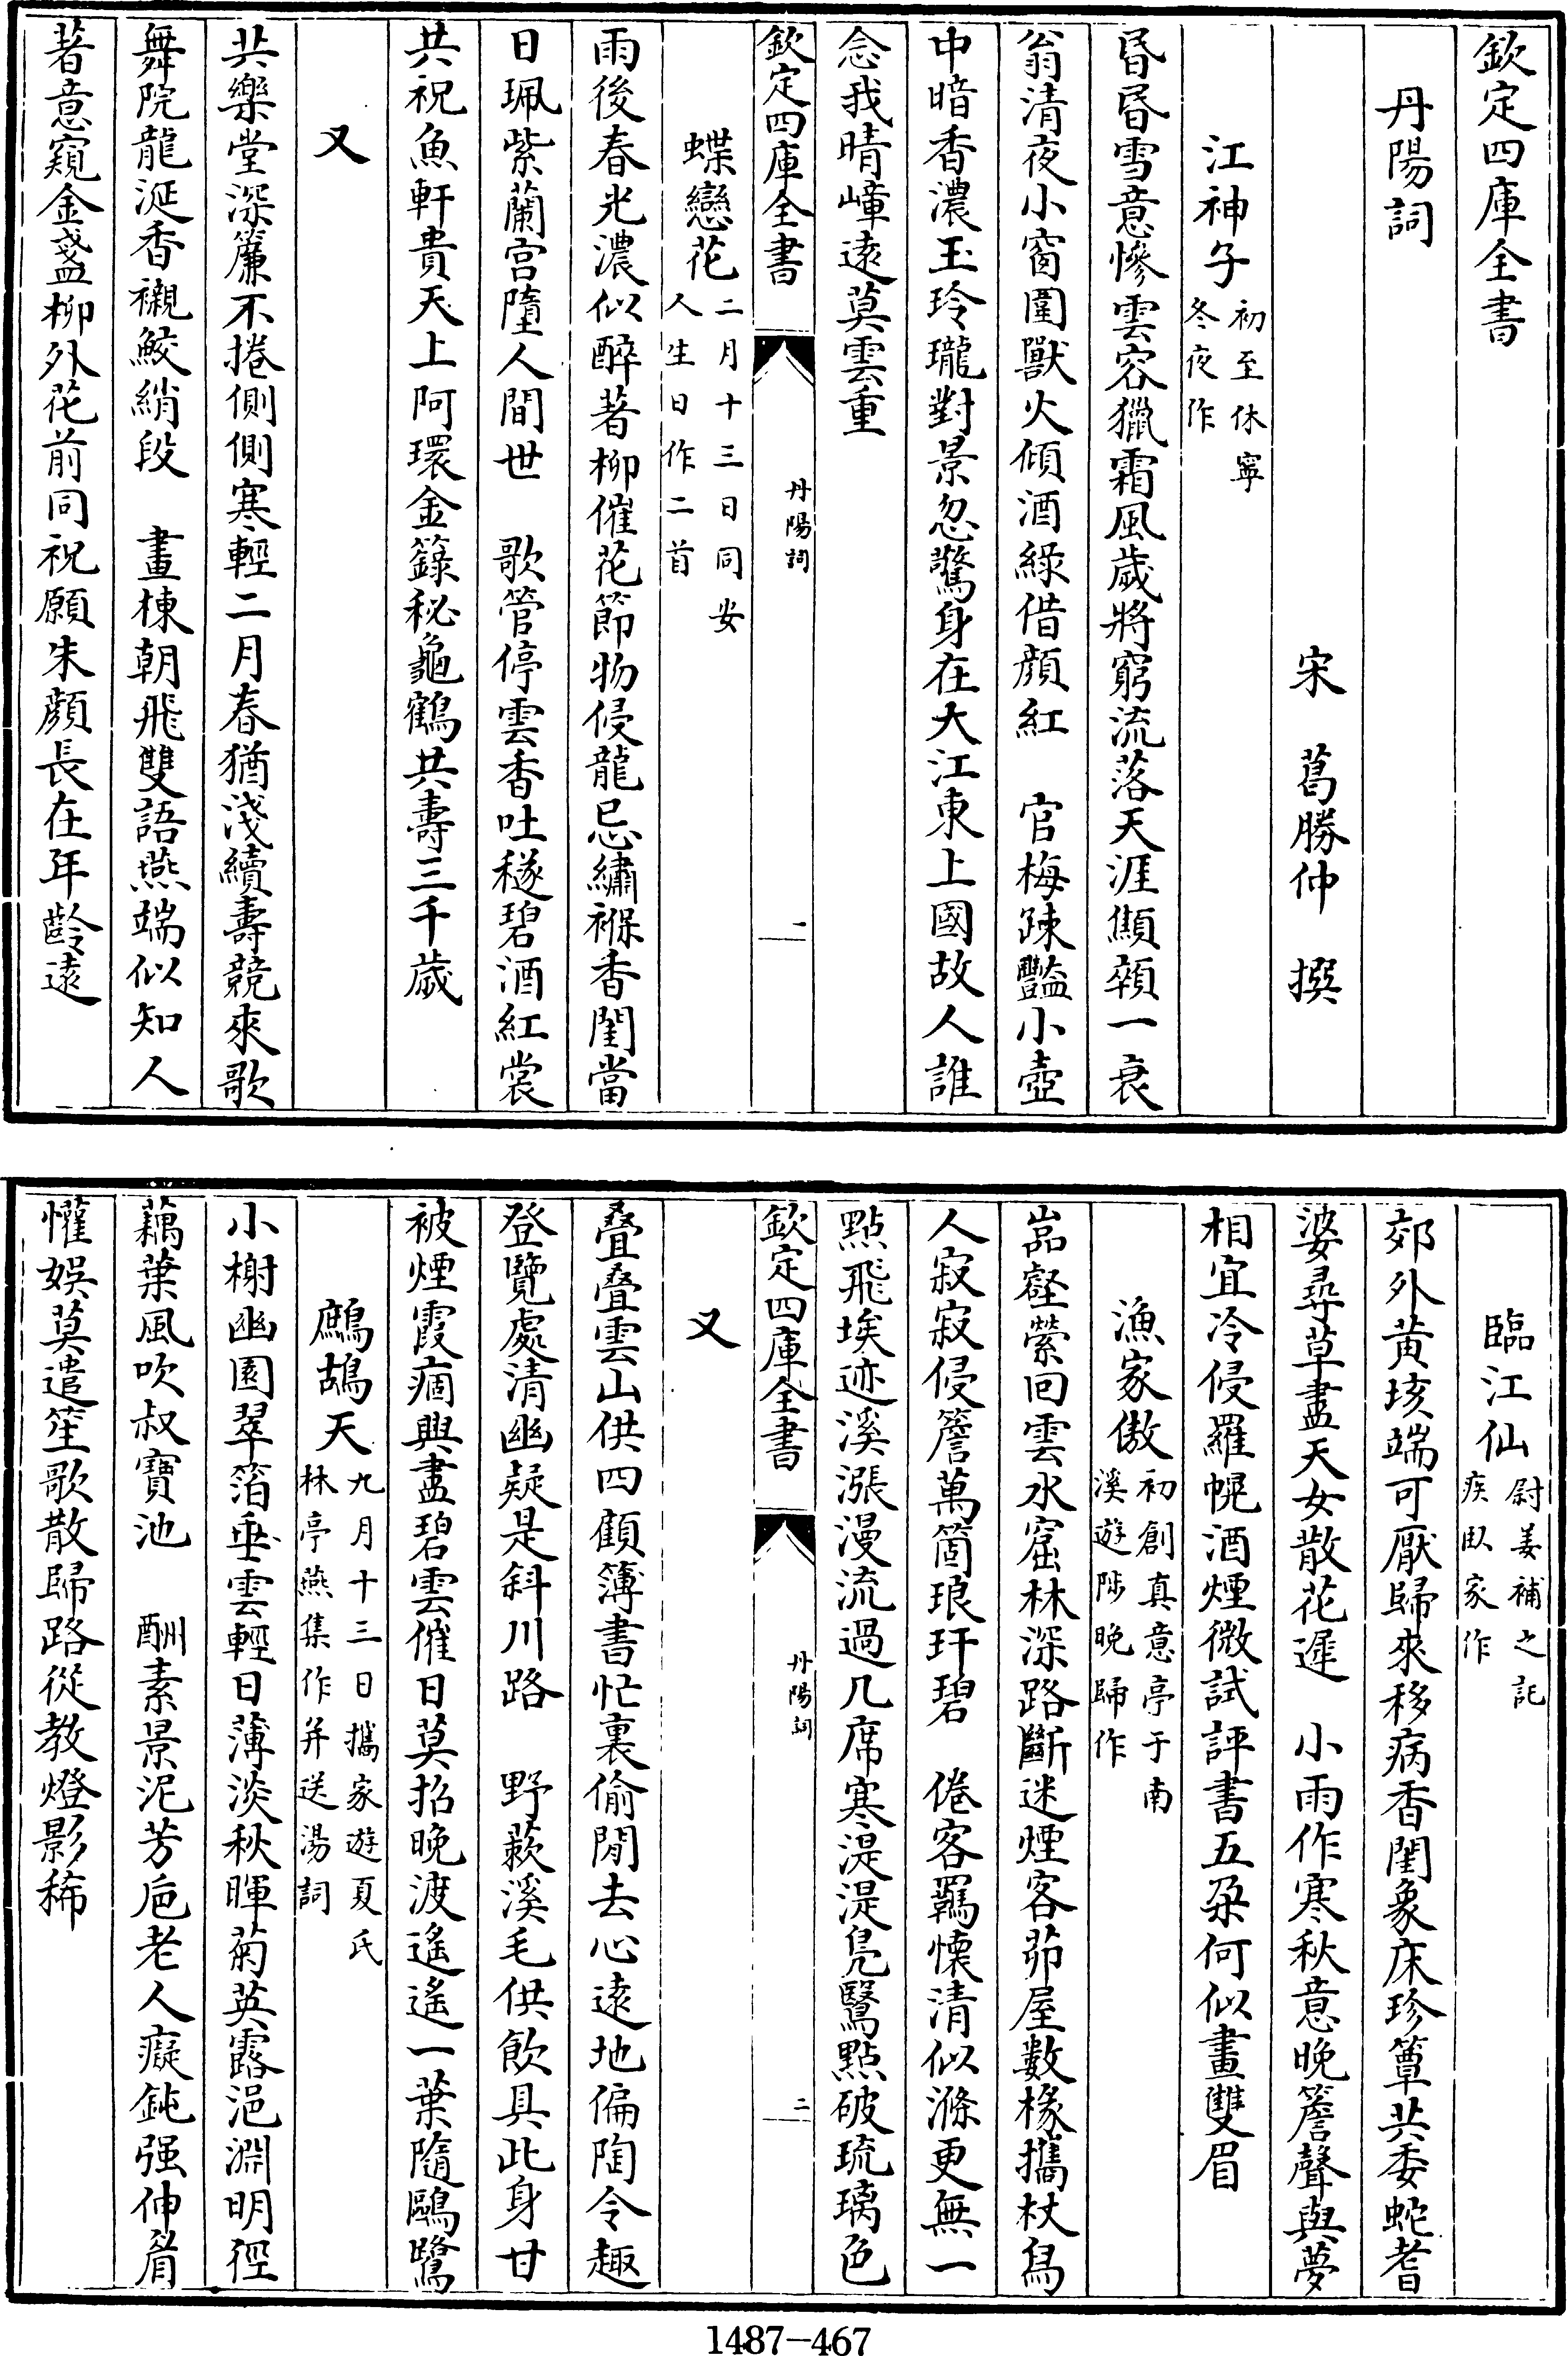 欽定四庫全書
丹陽詞
宋　葛勝仲　撰
江神子初至休寧冬夜作
昏昏雪意慘雲容獵霜風歲將窮流落天涯顦顇一衰
翁清夜小窗圍獸火傾酒緑借顔紅　官梅踈豔小壺
中暗香濃玉玲瓏對景忽驚身在大江東上國故人誰
念我晴嶂遠莫雲重
欽定四庫全書
丹陽詞
一
蝶戀花二月十三日同安人生日作二首
雨後春光濃似醉著柳催花節物侵龍忌繡褓香閨當
日珮紫蘭宫墮人間世　歌管停雲香吐穟碧酒紅裳
共祝魚軒貴天上阿環金籙秘龜鶴共壽三千歳
又
共樂堂深簾不捲側側寒輕二月春猶淺續壽競來歌
舞院龍涎香襯鮫綃段　畫棟朝飛雙語燕端似知人
著意窺金盞柳外花前同祝願朱顔長在年齡遠
臨江仙尉姜補之託疾臥家作
郊外黄垓端可厭歸來移病香閨象床珍簟共委蛇耆
婆尋草盡天女散花遲　小雨作寒秋意晚簷聲與夢
相宜冷侵羅幌酒煙微試評書五朶何似畫雙眉
漁家傲初創真意亭于南溪遊陟晚歸作
嵓壑縈回雲水窟林深路斷迷煙客茆屋數椽攜杖舄
人寂寂侵簷萬箇琅玕碧　倦客羈懷清似滌更無一
點飛埃迹溪漲漫流過几席寒湜湜鳬鷖點破琉璃色
欽定四庫全書
丹陽詞
二
又
疊疊雲山供四顧簿書忙裏偷閒去心遠地偏陶令趣
登覽處清幽疑是斜川路　野蔌溪毛供飲具此身甘
被煙霞痼興盡碧雲催日莫招晚渡遙遙一葉隨鷗鷺
鷓鴣天九月十三日攜家遊夏氏林亭燕集作并送湯詞
小榭幽園翠箔垂雲輕日薄淡秋暉菊英露浥淵明徑
藕葉風吹叔寶池　酬素景泥芳巵老人癡鈍强伸眉
懽娱莫遣笙歌散歸路從教燈影稀
1487-467